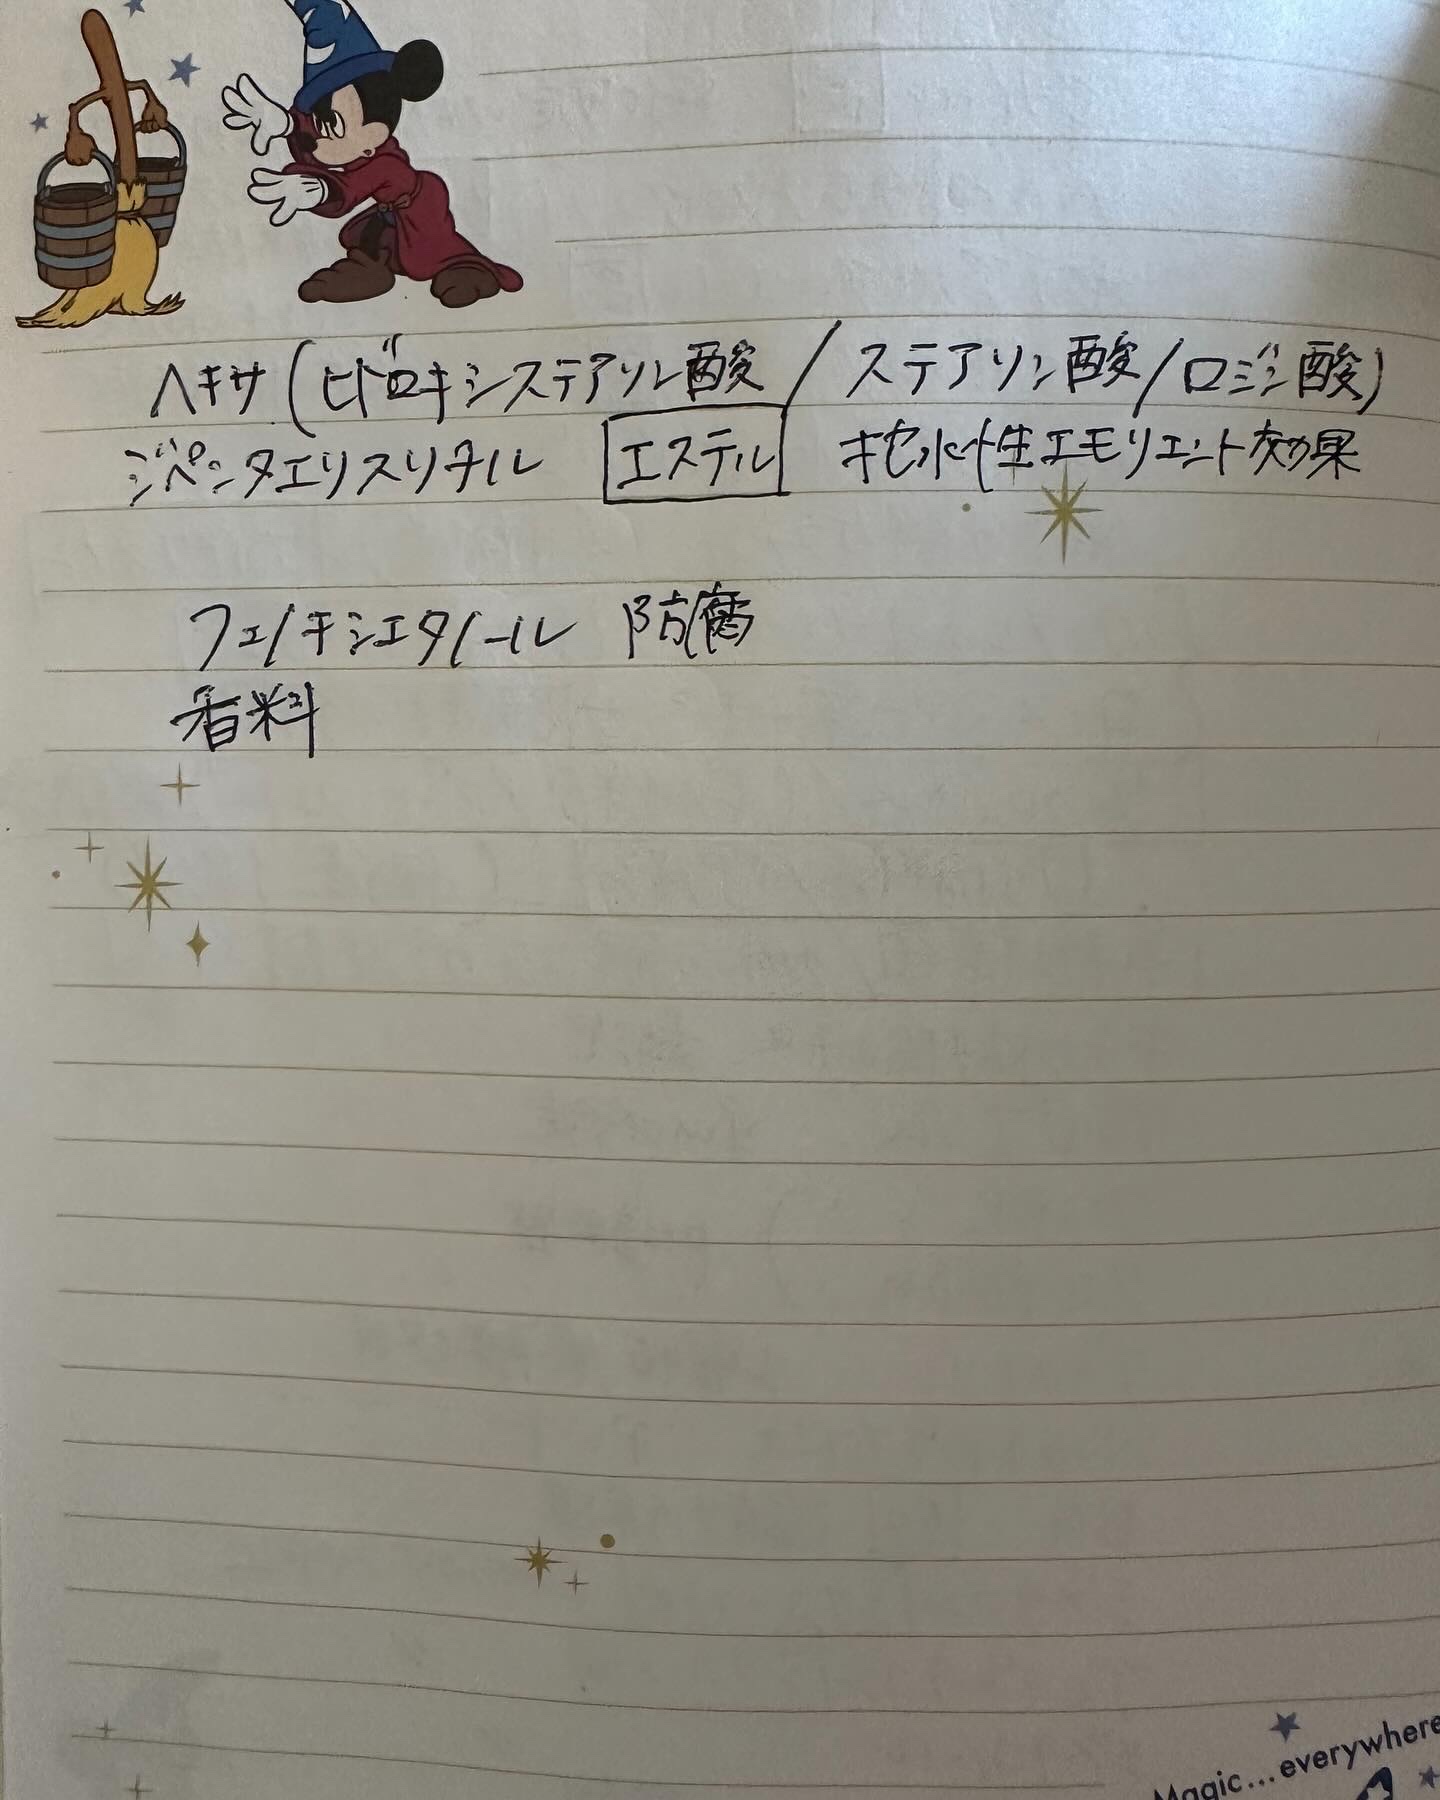 ヘキサ(ヒドロキシステアリン酸/ステアリン酸/ロジン酸)
ジペンタエリスリチル エステル 抱水性エモリエント効果
フェノキシエタノール 防腐
香料
Magic...everywhere